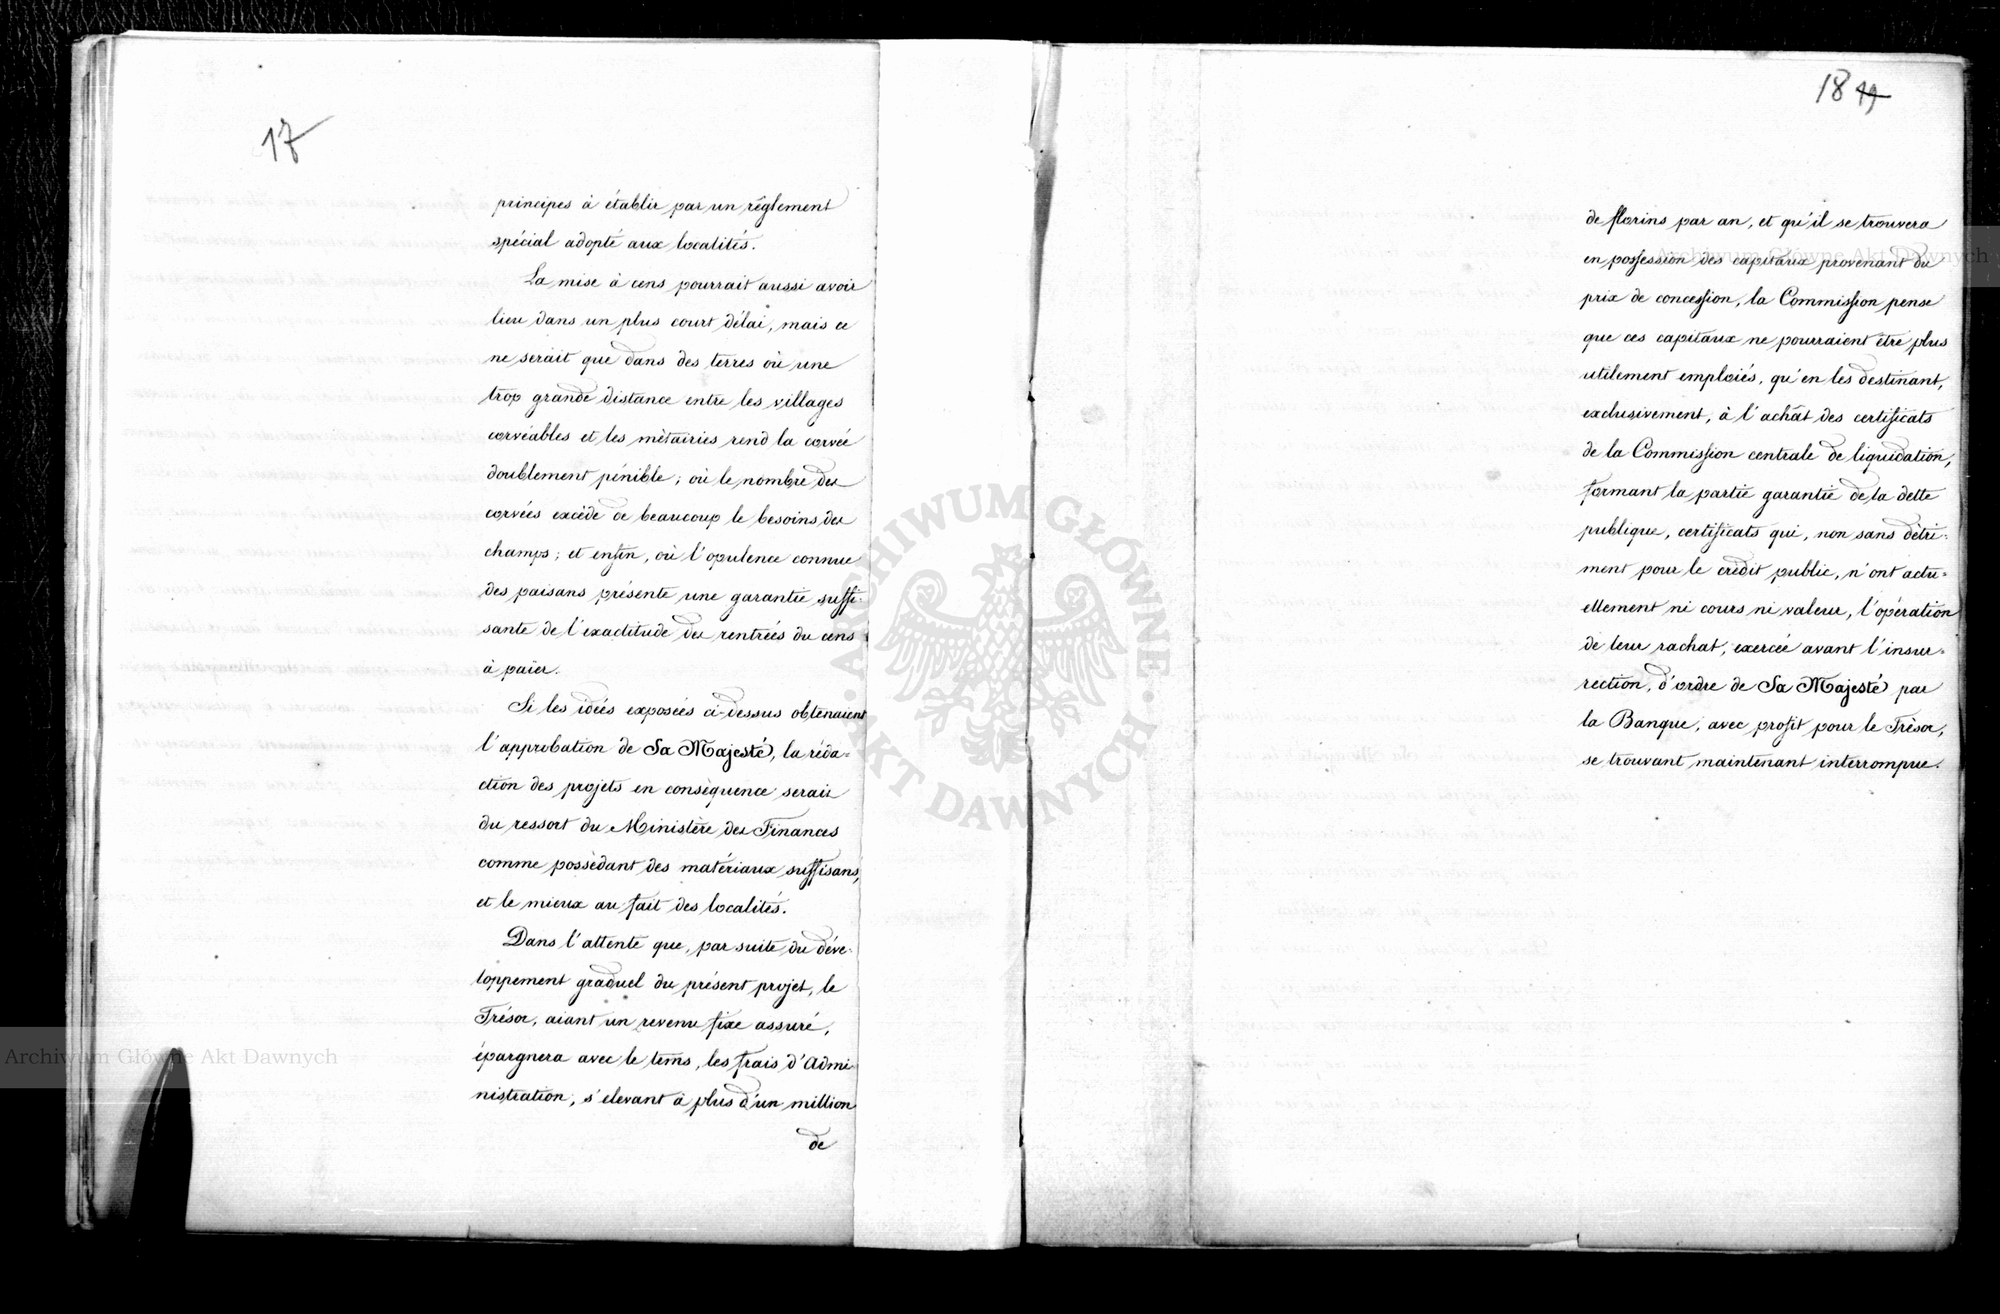 17
principes à établir par un règlement
spécial adopté aux localités.
La mise à cens pourrait aussi avoir
lieu dans un plus court délai, mais ce
ne serait que dans des terres où une
trop grande distance entre les villages
corvéables et les métairies rend la corvée
doublement pénible; où le nombre des
corvées excède de beaucoup le besoins des
champs; et enfin, où l'opulence connue
des paisans présente une garantie suffi-
sante de l'exactitude des rentrées du cens
à païer.
Si les idées exposées ci-dessus obtenaient
l'approbation de Sa Majesté, la réda-
ction des projets en conséquence serait
du ressort du Ministère des Finances
comme possédant des matériaux suffisans,
et le mieux au fait des localités.
Dans l'attente que, par suite du déve-
loppement graduel du présent projet, le
Trésor, aiant un revenu fixe assuré,
épargnera avec le tems, les frais d'Admi-
nistration, s'élevant à plus d'un million
de
18
de florins par an, et qu'il se trouvera
en possession des capitaux provenant du
prix de concession, la Commission pense
que ces capitaux ne pourraient être plus
utilement emploiés, qu'en les destinant,
exclusivement, à l'achât des certificats
de la Commission centrale de liquidation,
formant la partie garantie de la dette
publique, certificats qui, non sans détri-
ment pour le crédit public, n'ont actu-
ellement ni cours ni valeur, l'opération
de leur rachat, exercée avant l'insur-
rection, d'ordre de Sa Majesté par
la Banque, avec profit pour le Trésor,
se trouvant maintenant interrompue.
ARCHIWUM GŁÓWNE
AKT DAWNYCH
Archiwum Główne Akt Dawnych
Archiwum Główne Akt Dawnych